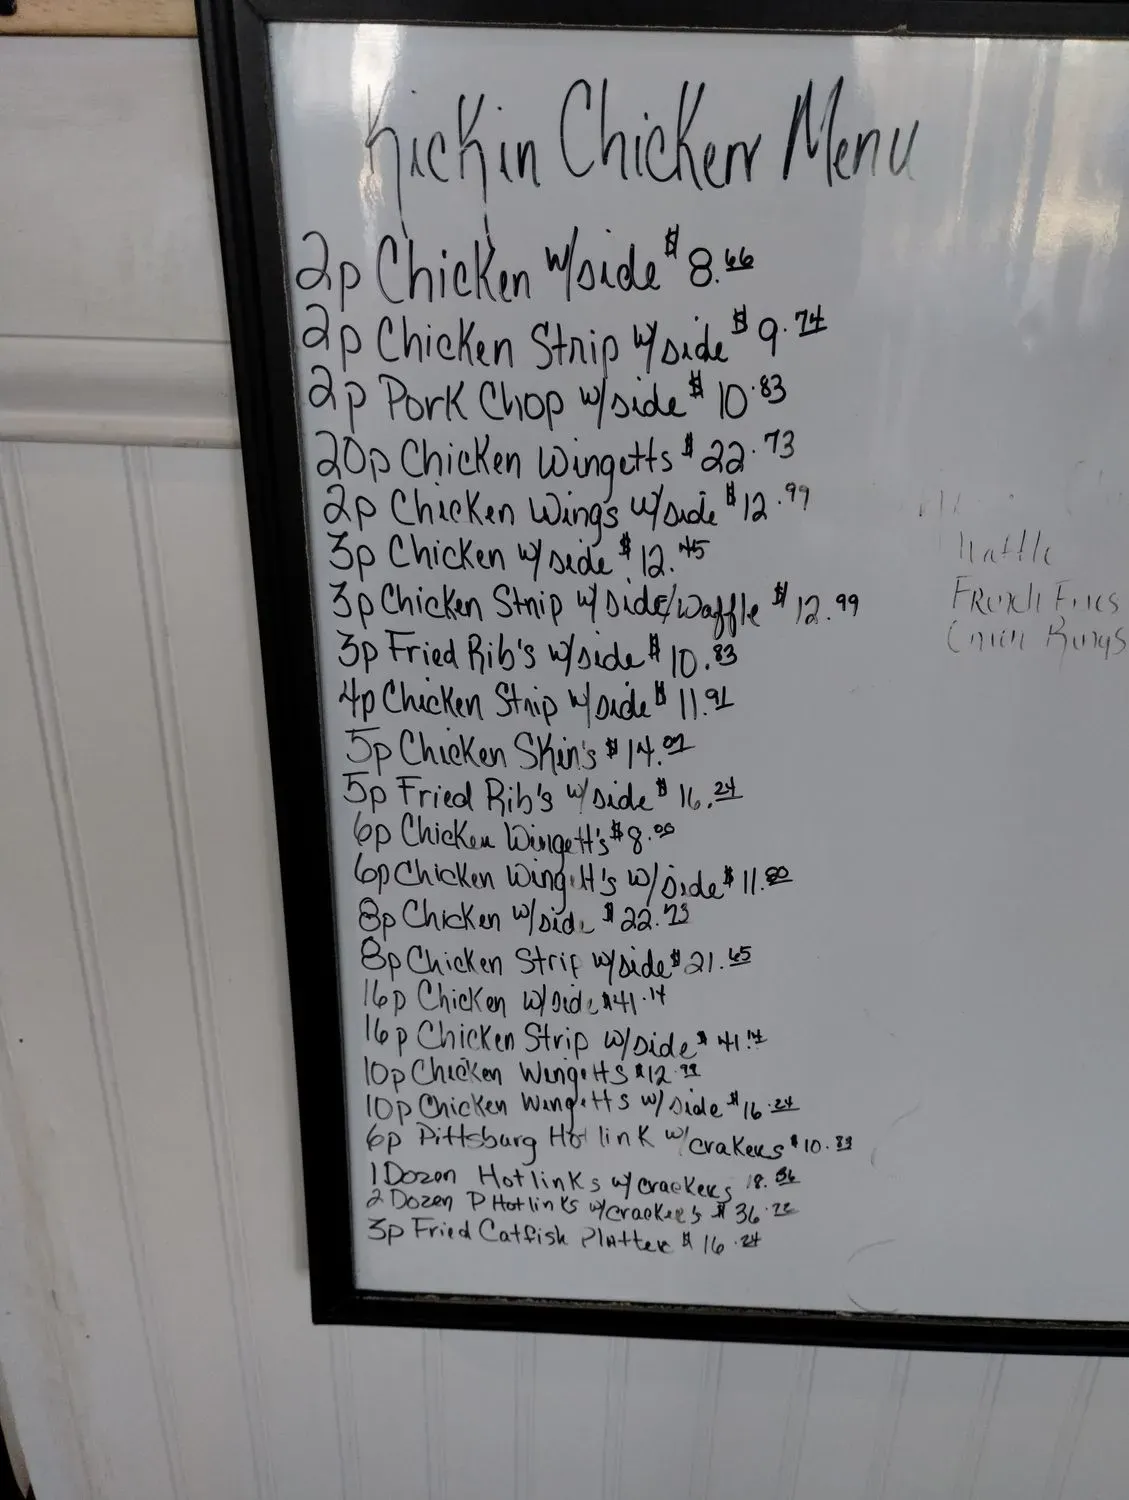 Kickin Chicken Menu
2p Chicken w/side $8.66
2p Chicken Strip w/side $9.74
2p Pork Chop w/side $10.83
20p Chicken Wingetts $22.73
2p Chicken Wings w/side $12.99
3p Chicken w/side $12.45
3p Chicken Strip w/side/waffle $12.99
3p Fried Rib's w/side $10.83
4p Chicken Strip w/side $11.91
5p Chicken Skin's $14.07
5p Fried Rib's w/side $16.24
6p Chicken Wingett's $8.00
6p Chicken Wingett's w/side $11.80
8p Chicken w/side $22.73
8p Chicken Strip w/side $21.65
16p Chicken w/side $41.14
16p Chicken Strip w/side $41.14
10p Chicken Wingetts $12.99
10p Chicken Wingetts w/side $16.24
6p Pittsburg Hot link w/crakers $10.83
1 Dozen Hotlinks w/crackers 18.
2 Dozen P Hotlinks w/cracker's $36.22
3p Fried Catfish Platter $16.24
French Fries
Onion Rings